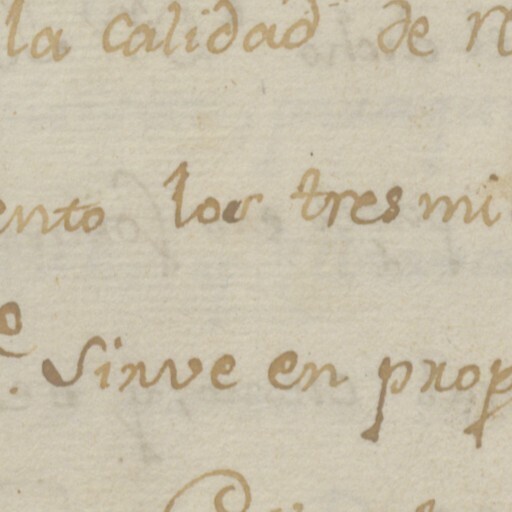 la calidad de
ento los tres mi
Sirve en prop